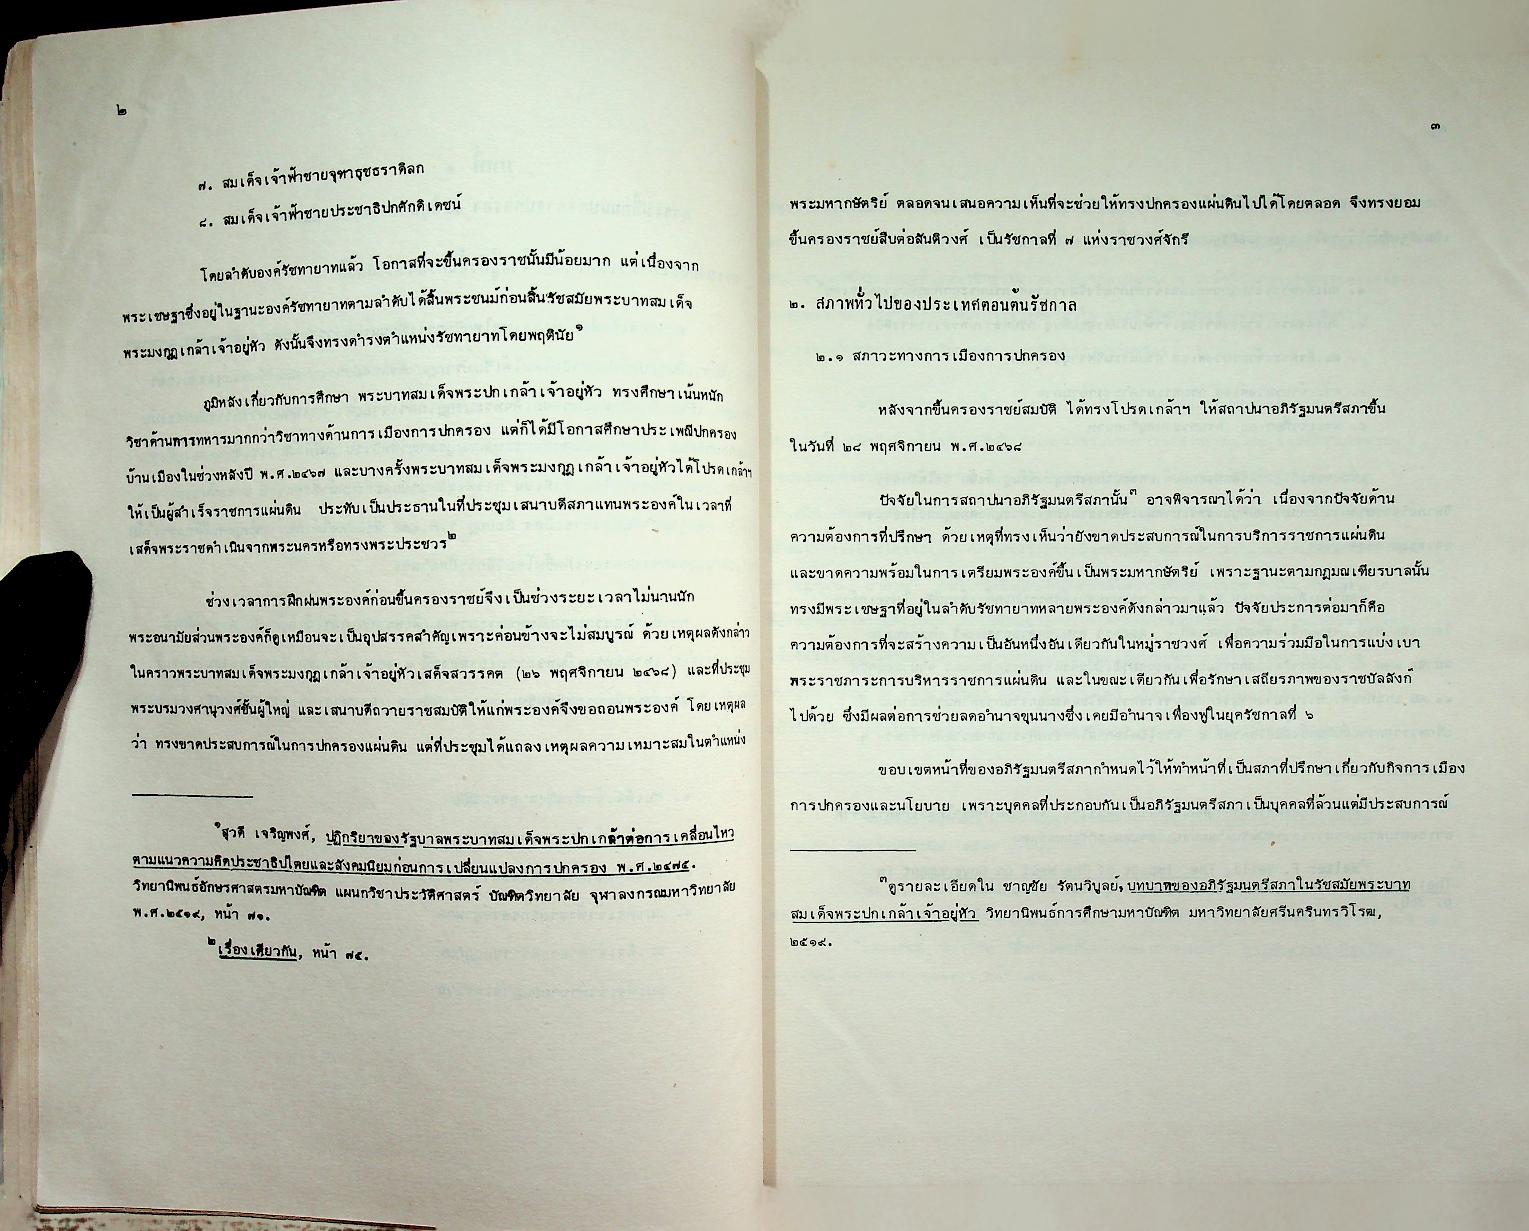 ๒
๗. สมเด็จเจ้าฟ้าชายจุฑาธุชธราดิลก
๘. สมเด็จเจ้าฟ้าชายประชาธิปกศักดิเดชน์
โดยลำดับองค์รัชทายาทแล้ว โอกาสที่จะขึ้นครองราชนั้นมีน้อยมาก แต่เนื่องจาก
พระเชษฐาซึ่งอยู่ในฐานะองค์รัชทายาทตามลำดับได้สิ้นพระชนม์ก่อนสิ้นรัชสมัยพระบาทสมเด็จ
พระมงกุฎเกล้าเจ้าอยู่หัว ดังนั้นจึงทรงดำรงตำแหน่งรัชทายาทโดยพฤตินัย๑
ภูมิหลังเกี่ยวกับการศึกษา พระบาทสมเด็จพระปกเกล้าเจ้าอยู่หัว ทรงศึกษาเน้นหนัก
วิชาด้านการทหารมากกว่าวิชาทางด้านการเมืองการปกครอง แต่ก็ได้มีโอกาสศึกษาประเพณีปกครอง
บ้านเมืองในช่วงหลังปี พ.ศ.๒๔๖๗ และบางครั้งพระบาทสมเด็จพระมงกุฎเกล้าเจ้าอยู่หัวได้โปรดเกล้าฯ
ให้เป็นผู้สำเร็จราชการแผ่นดิน ประทับเป็นประธานในที่ประชุมเสนาบดีสภาแทนพระองค์ในเวลาที่
เสด็จพระราชดำเนินจากพระนครหรือทรงพระประชวร๒
ช่วงเวลาการฝึกฝนพระองค์ก่อนขึ้นครองราชย์จึงเป็นช่วงระยะเวลาไม่นานนัก
พระอนามัยส่วนพระองค์ก็ดูเหมือนจะเป็นอุปสรรคสำคัญเพราะค่อนข้างจะไม่สมบูรณ์ ด้วยเหตุผลดังกล่าว
ในคราวพระบาทสมเด็จพระมงกุฎเกล้าเจ้าอยู่หัวเสด็จสวรรคต (๒๖ พฤศจิกายน ๒๔๖๘) และที่ประชุม
พระบรมวงศานุวงศ์ชั้นผู้ใหญ่ และเสนาบดีถวายราชสมบัติให้แก่พระองค์จึงขอถอนพระองค์ โดยเหตุผล
ว่า ทรงขาดประสบการณ์ในการปกครองแผ่นดิน แต่ที่ประชุมได้แถลงเหตุผลความเหมาะสมในตำแหน่ง
๑สุวดี เจริญพงศ์, ปฏิกริยาของรัฐบาลพระบาทสมเด็จพระปกเกล้าต่อการเคลื่อนไหว
ตามแนวความคิดประชาธิปไตยและสังคมนิยมก่อนการเปลี่ยนแปลงการปกครอง พ.ศ.๒๔๗๕.
วิทยานิพนธ์อักษรศาสตรมหาบัณฑิต แผนกวิชาประวัติศาสตร์ บัณฑิตวิทยาลัย จุฬาลงกรณมหาวิทยาลัย
พ.ศ.๒๕๑๙, หน้า ๗๑.
๒เรื่องเดียวกัน, หน้า ๗๕.
๓
พระมหากษัตริย์ ตลอดจนเสนอความเห็นที่จะช่วยให้ทรงปกครองแผ่นดินไปได้โดยตลอด จึงทรงยอม
ขึ้นครองราชย์สืบต่อสันติวงศ์ เป็นรัชกาลที่ ๗ แห่งราชวงศ์จักรี
๒. สภาพทั่วไปของประเทศตอนต้นรัชกาล
๒.๑ สภาวะทางการเมืองการปกครอง
หลังจากขึ้นครองราชย์สมบัติ ได้ทรงโปรดเกล้าฯ ให้สถาปนาอภิรัฐมนตรีสภาขึ้น
ในวันที่ ๒๘ พฤศจิกายน พ.ศ.๒๔๖๘
ปัจจัยในการสถาปนาอภิรัฐมนตรีสภานั้น๓ อาจพิจารณาได้ว่า เนื่องจากปัจจัยด้าน
ความต้องการที่ปรึกษา ด้วยเหตุที่ทรงเห็นว่ายังขาดประสบการณ์ในการบริการราชการแผ่นดิน
และขาดความพร้อมในการเตรียมพระองค์ขึ้นเป็นพระมหากษัตริย์ เพราะฐานะตามกฎมณเฑียรบาลนั้น
ทรงมีพระเชษฐาที่อยู่ในลำดับรัชทายาทหลายพระองค์ดังกล่าวมาแล้ว ปัจจัยประการต่อมาก็คือ
ความต้องการที่จะสร้างความเป็นอันหนึ่งอันเดียวกันในหมู่ราชวงศ์ เพื่อความร่วมมือในการแบ่งเบา
พระราชภาระการบริหารราชการแผ่นดิน และในขณะเดียวกันเพื่อรักษาเสถียรภาพของราชบัลลังก์
ไปด้วย ซึ่งมีผลต่อการช่วยลดอำนาจขุนนางซึ่งเคยมีอำนาจเฟื่องฟูในยุครัชกาลที่ ๖
ขอบเขตหน้าที่ของอภิรัฐมนตรีสภากำหนดไว้ให้ทำหน้าที่เป็นสภาที่ปรึกษาเกี่ยวกับกิจการเมือง
การปกครองและนโยบาย เพราะบุคคลที่ประกอบกันเป็นอภิรัฐมนตรีสภาเป็นบุคคลที่ล้วนแต่มีประสบการณ์
๓ดูรายละเอียดใน ชาญชัย รัตนวิบูลย์, บทบาทของอภิรัฐมนตรีสภาในรัชสมัยพระบาท
สมเด็จพระปกเกล้าเจ้าอยู่หัว วิทยานิพนธ์การศึกษามหาบัณฑิต มหาวิทยาลัยศรีนครินทรวิโรฒ,
๒๕๑๙.